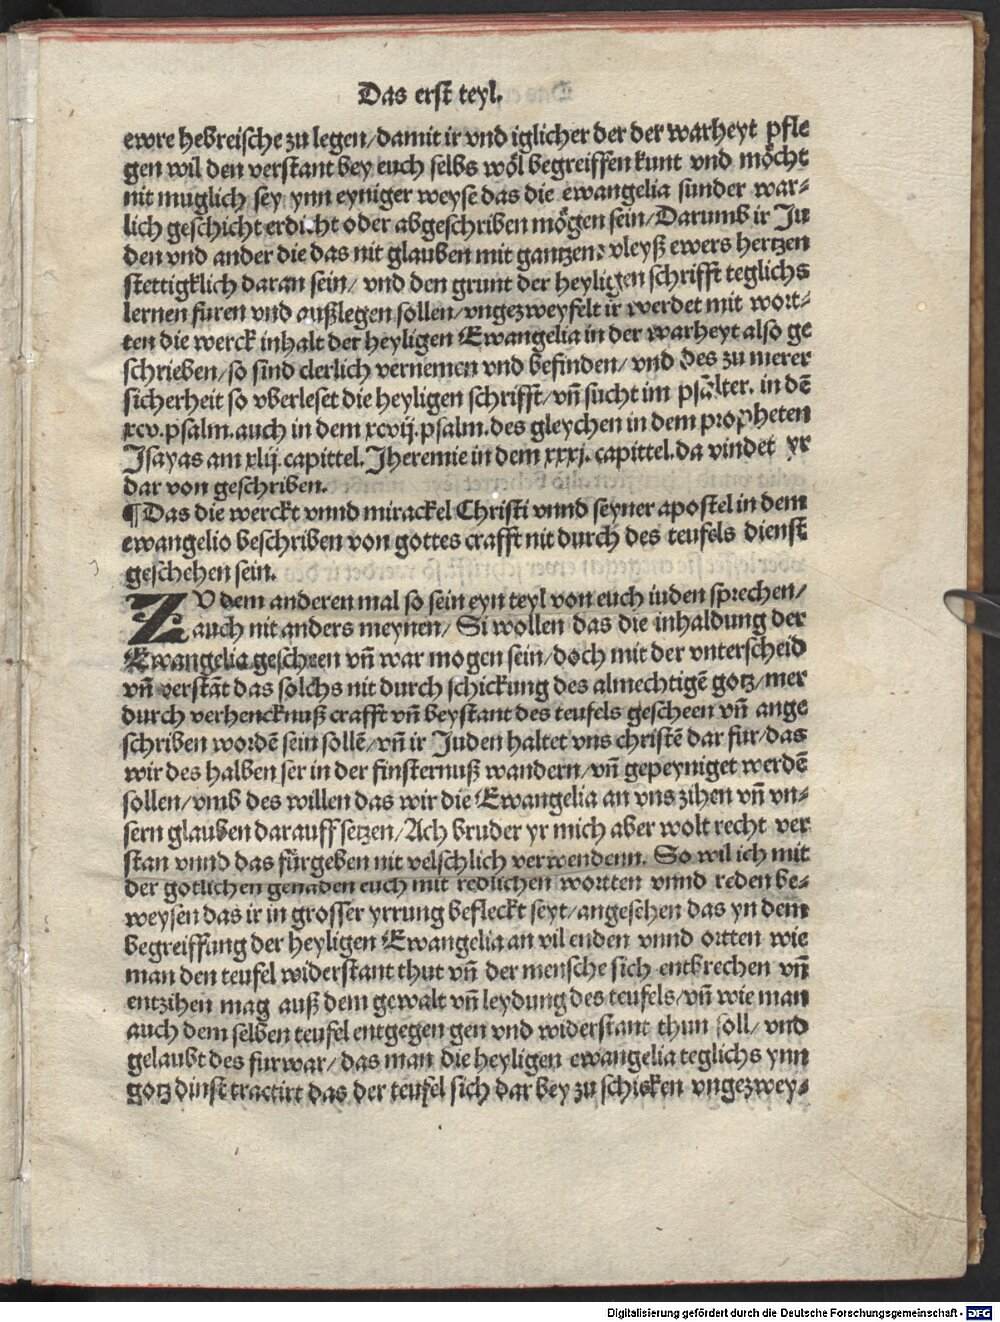 Das erst teyl.
ewre hebreische zu legen/damit ir vnd iglicher der der warheyt pfle
gen wil den verstant bey euch selbs wöl begreiffen kunt vnd möcht
nit muglich sey ynn eyniger weyse das die ewangelia sunder war⸗
lich geschicht erdicht oder abgeschriben mögen sein/Darumb ir Ju
den vnd ander die das nit glauben mit gantzen vleyß ewers hertzen
stettigklich daran sein/ vnd den grunt der heyligen schrifft teglichs
lernen furen vnd außlegen sollen/vngezweyfelt ir werdet mit wort⸗
ten die werck inhalt der heyligen Ewangelia in der warheyt also ge
schrieben/so sind clerlich vernemen vnd befinden/vnd des zu merer
sicherheit so vberleset die heyligen schrifft/vn̄ sucht im psalter. in dē
xcv.psalm.auch in dem xcvij.psalm.des gleychen in dem propheten
Jsayas am xlij.capittel.Jheremie in dem xxxj.capittel.da vindet yr
dar von geschriben.
¶Das die werckt vnnd mirackel Christi vnnd seyner apostel in dem
ewangelio beschriben von gottes crafft nit durch des teufels dienst
geschehen sein.
ZU dem anderen mal so sein eyn teyl von euch iuden sprechen/
auch nit anders meynen/ Si wollen das die inhaldung der
Ewangelia gescheen vn̄ war mogen sein/doch mit der vnterscheid
vn̄ verstāt das solchs nit durch schickung des almechtigē gotz/mer
durch verhencknuß crafft vn̄ beystant des teufels gescheen vn̄ ange
schriben wordē sein sollē/vn̄ ir Juden haltet vns christē dar fur/das
wir des halben ser in der finsternuß wandern/vn̄ gepeyniget werdē
sollen/vmb des willen das wir die Ewangelia an vns zihen vn̄ vn⸗
sern glauben darauff setzen/Ach bruder yr mich aber wolt recht ver
stan vnnd das fürgeben nit velschlich verwendenn. So wil ich mit
der gotlichen genaden euch mit redlichen wortten vnnd reden be⸗
weysen das ir in grosser yrrung befleckt seyt/angesehen das yn dem
begreiffung der heyligen Ewangelia an vil enden vnnd ortten wie
man den teufel widerstant thut vn̄ der mensche sich entbrechen vn̄
entzihen mag auß dem gewalt vn̄ leydung des teufels/vn̄ wie man
auch dem selben teufel entgegen gen vnd widerstant thun soll/vnd
gelaubt des furwar/das man die heyligen ewangelia teglichs ynn
gotz dinst tractirt das der teufel sich dar bey zu schicken vngezwey⸗
Digitalisierung gefördert durch die Deutsche Forschungsgemeinschaft - DFG